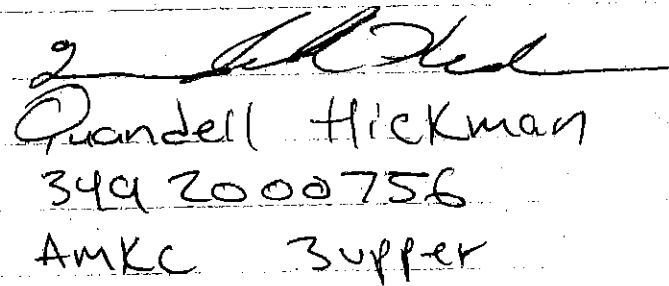 Quandell Hickman
349 2000756
AMKC 3upper